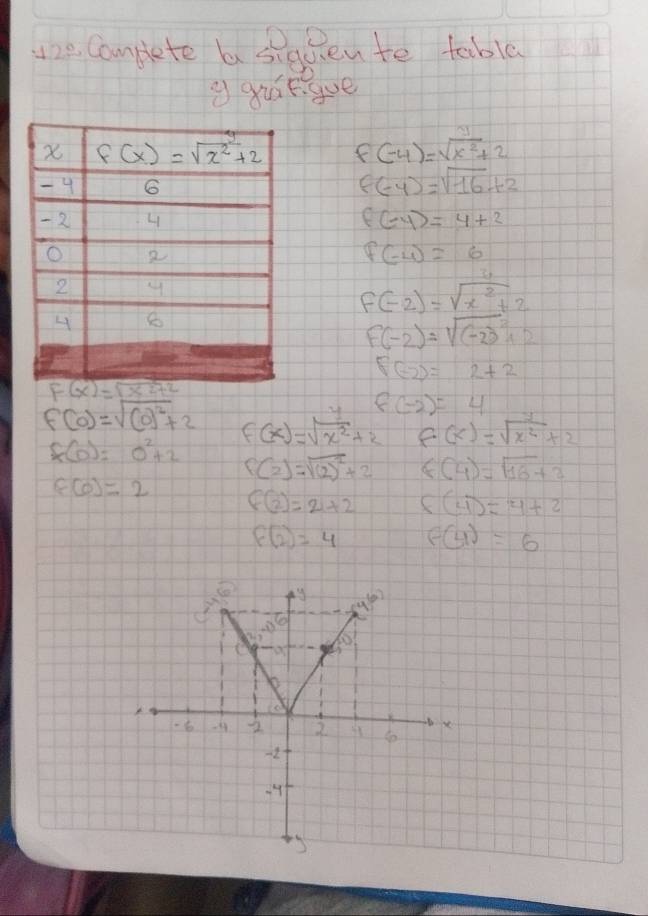 12º Complete la siguiente tabla
y gráfique
x f(x) = √x²+2
y
-4 6
-2 4
0 2
2 4
4 6
y
f(-4) = √x²+2
f(-4) = √16+2
f(-4) = 4+2
f(-4) = 6
y
f(-2) = √x²+2
f(-2) = √(-2)²+2
f(-2) = 2+2
f(-2) = 4
f(x) = √x²+2
f(0) = √(0)²+2
f(0) = 0²+2
f(0) = 2
y
f(x) = √x²+2
f(2) = √(2)²+2
f(2) = 2+2
f(2) = 4
y
f(x) = √x²+2
f(4) = √16+2
f(4) = 4+2
f(4) = 6
y
(-4,6) 6 (4,6)
4
-6 -4 -2 2 4 6 x
-2
-4
y